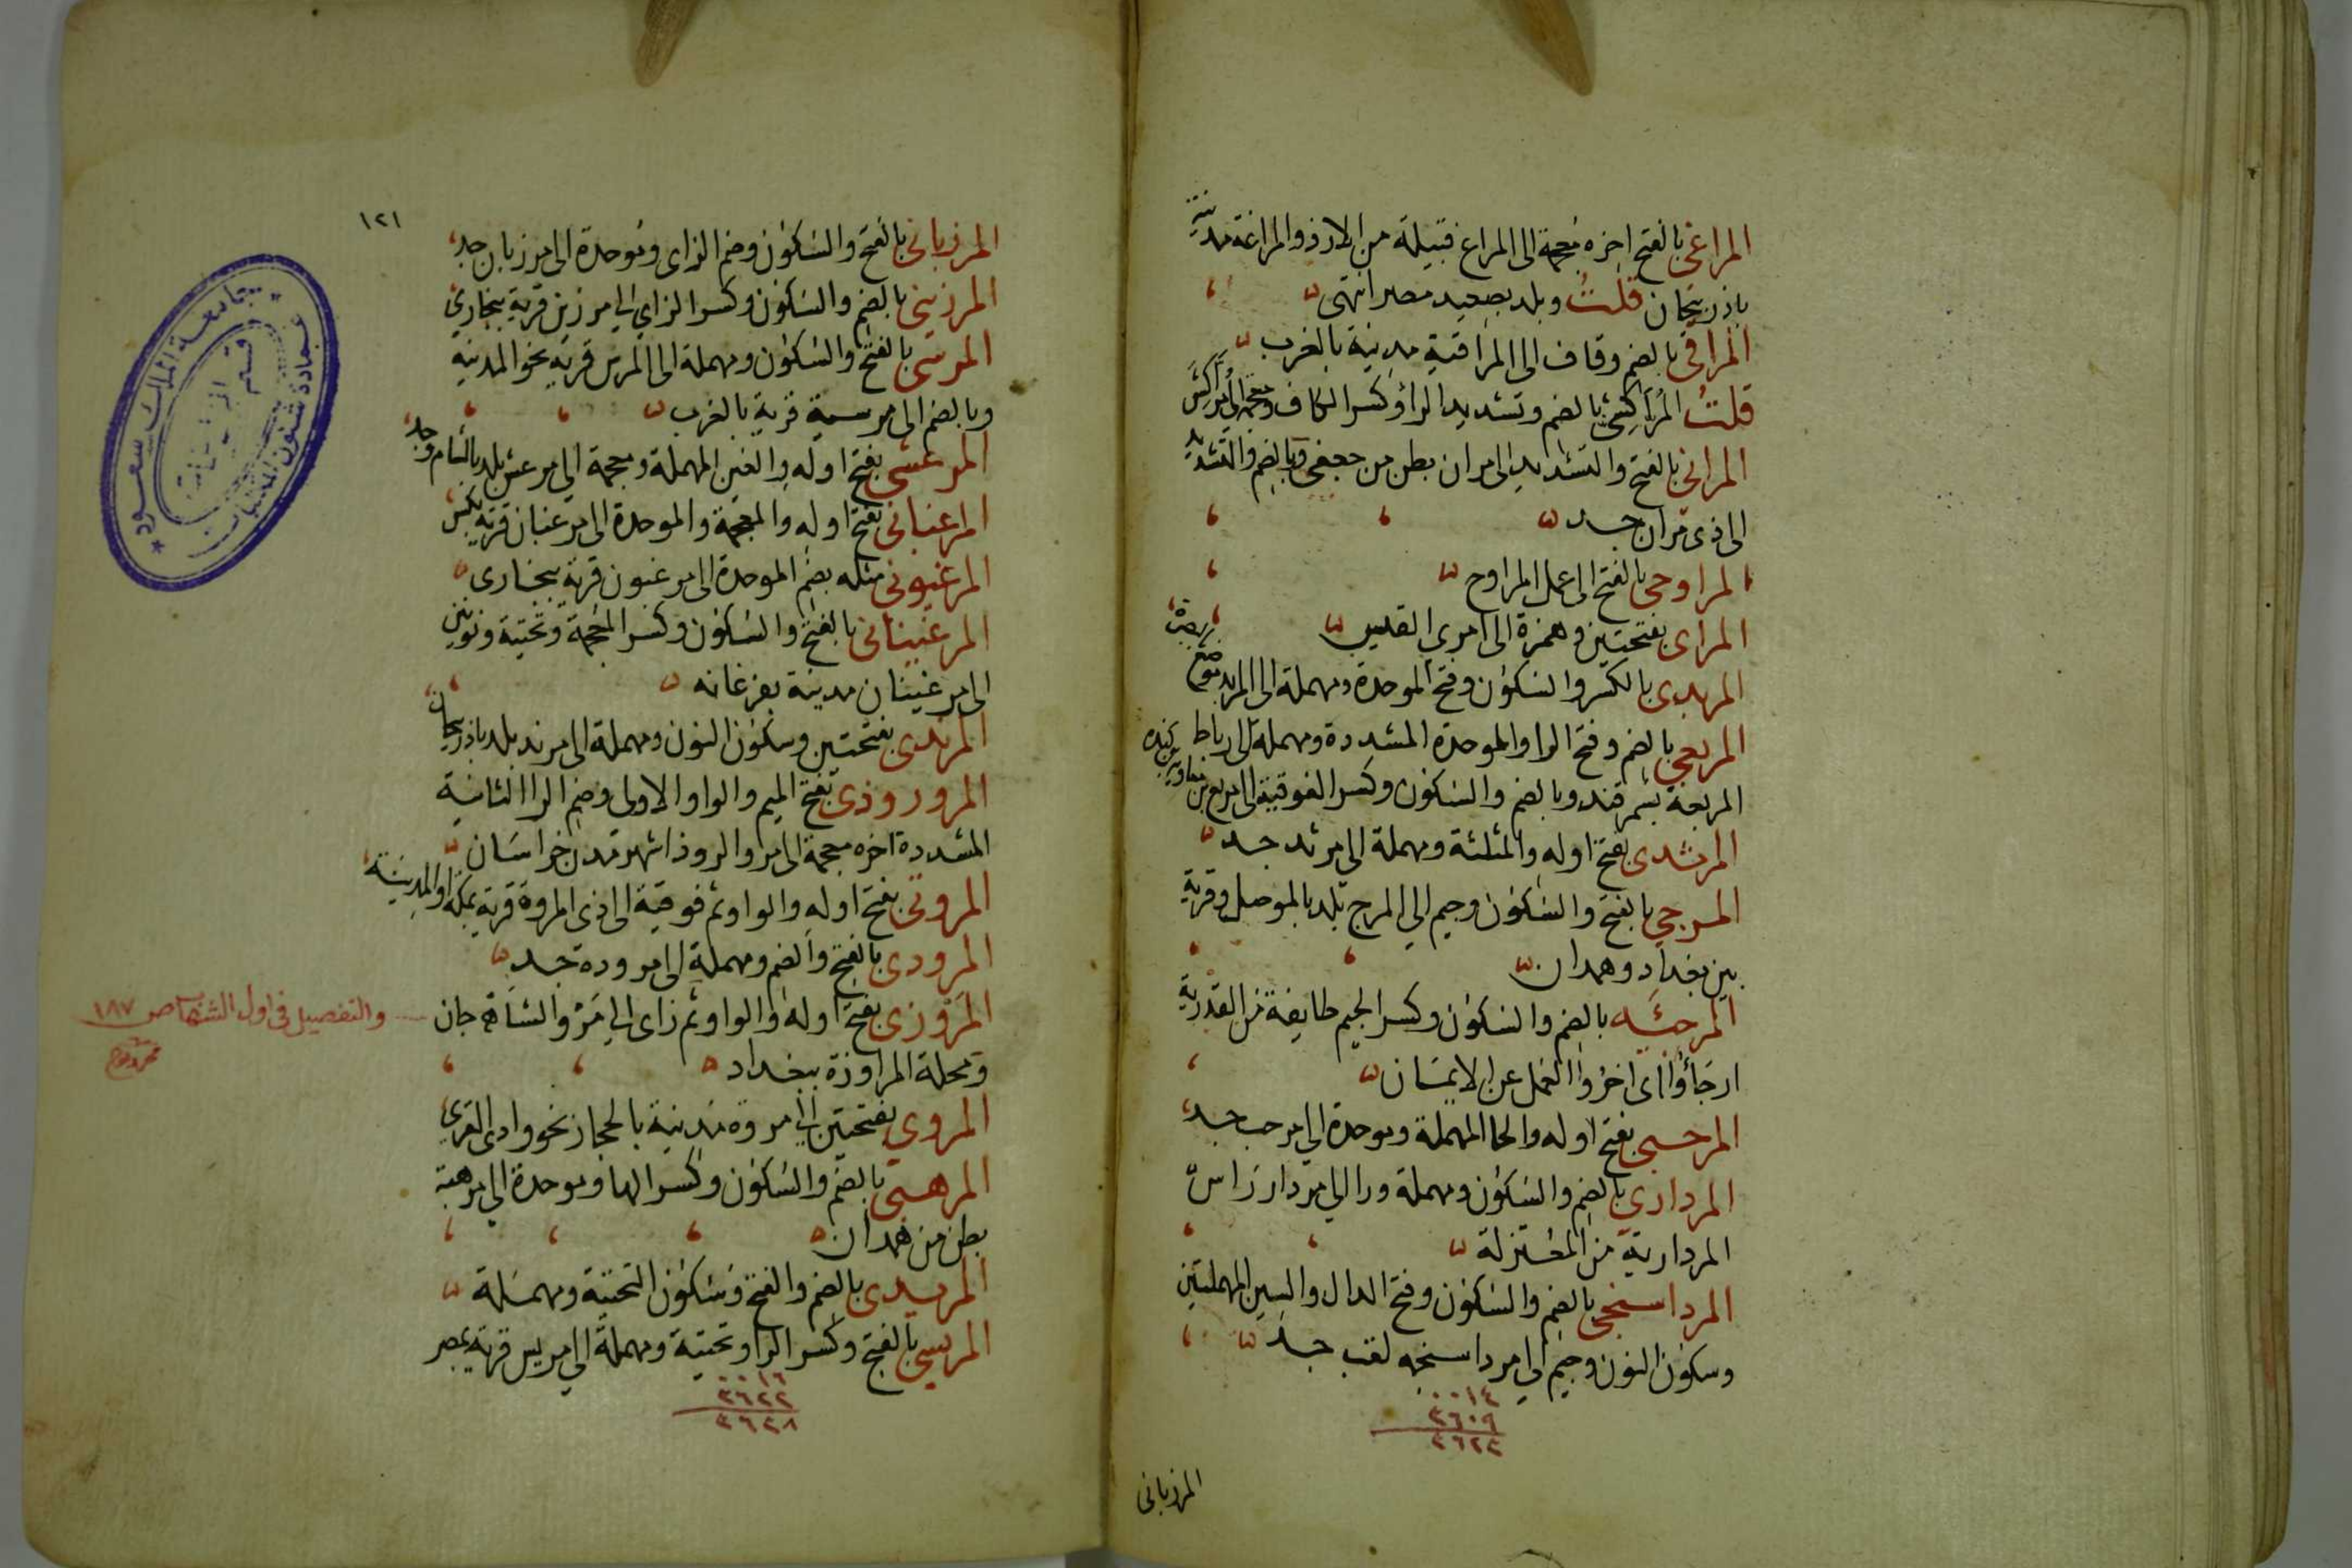 المراغى بالفتح اخره معجمة الى المراغ قبيلة من الازد والمراغة مدينة
باذربيجان قلت وبلد بصعيد مصر انتهى
المراقى بالضم وقاف الى المراقية مدينة بالغرب
قلت المُرَّاكِشى بالضم وتشديد الرا وكسر الكاف ومعجمة الى مُرَّاكِش
المرانى بالفتح والتشديد الى مران بطن من جعفى وبالضم والتشديد
الى ذى مران جد
المراوحى بالفتح الى عمل المراوح
المراى بفتحتين وهمزة الى امرى القيس
المربدى بالكسر والسكون وفتح الموحدة ومهملة الى المربد موضع بالبصرة
المربعى بالضم وفتح الرا والموحدة المشددة ومهملة الى رباط
المربعة بسمرقند وبالضم والسكون وكسر الفوقية الى مرتع بن معاوية بن كنده
المرثدى بفتح اوله والمثلثة ومهملة الى مرثد جد
المرجى بالفتح والسكون وجيم الى المرج بلد بالموصل وقرية
بين بغداد وهمدان
المرجئه بالضم والسكون وكسر الجيم طايفة من القدرية
ارجأوا اى اخروا العمل عن الايمان
المرحبى بفتح اوله والحا المهملة وموحدة الى مرحب جد
المردارى بالضم والسكون ومهملة ورا الى مردار راس
المردارية من المعتزلة
المرداسنجى بالضم والسكون وفتح الدال والسين المهملتين
وسكون النون وجيم الى مرداسنجه لقب جد
٠٠١٤
٣٦٠٩
٣٦٢٣
المرزبانى
١٢١
المرزبانى بالفتح والسكون وضم الزاى وموحدة الى مرزبان جد
المرزينى بالضم والسكون وكسر الزاي الى مرزين قرية ببخارى
المرسى بالفتح والسكون ومهملة الى المرس قرية نحو المدينة
وبالضم الى مرسية قرية بالغرب
المرعشى بفتح اوله والعين المهملة ومعجمة الى مرعش بلد بالشام وجد
المرغبانى بفتح اوله والمعجمة والموحدة الى مرغبان قرية بكس
المرغبونى مثله بضم الموحدة الى مرغبون قرية ببخارى
المرغينانى بالفتح والسكون وكسر المعجمة وتحتية ونونين
الى مرغينان مدينة بفرغانه
المرندى بفتحتين وسكون النون ومهملة الى مرند بلد باذربيجان
المروروذى بفتح الميم والواو الاولى وضم الرا الثانية
المشددة اخره معجمة الى مرو الروذ اشهر مدن خراسان
المروتى بفتح اوله والواو ثم فوقية الى ذى المروة قرية بمكة او المدينة
المرودى بالفتح والضم ومهملة الى مروده جد
المَرْوَزى بفتح اوله والواو ثم زاى الى مَرْو الشاهجان
والتفصيل فى اول الشنباص ١٨٧
ومحلة المراوزة ببغداد
المروى بفتحتين الى مروة مدينة بالحجاز نحو وادى القرى
المرهبى بالضم والسكون وكسر الها وموحدة الى مرهبة
بطن من همدان
المريدى بالضم والفتح وسكون التحتية ومهملة
المريسى بالفتح وكسر الرا وتحتية ومهملة الى مريس قرية بمصر
٠٠١٦
٣٦٢٢
٣٦٣٨
جامعة الملك سعود
عمادة شئون المكتبات
قسم